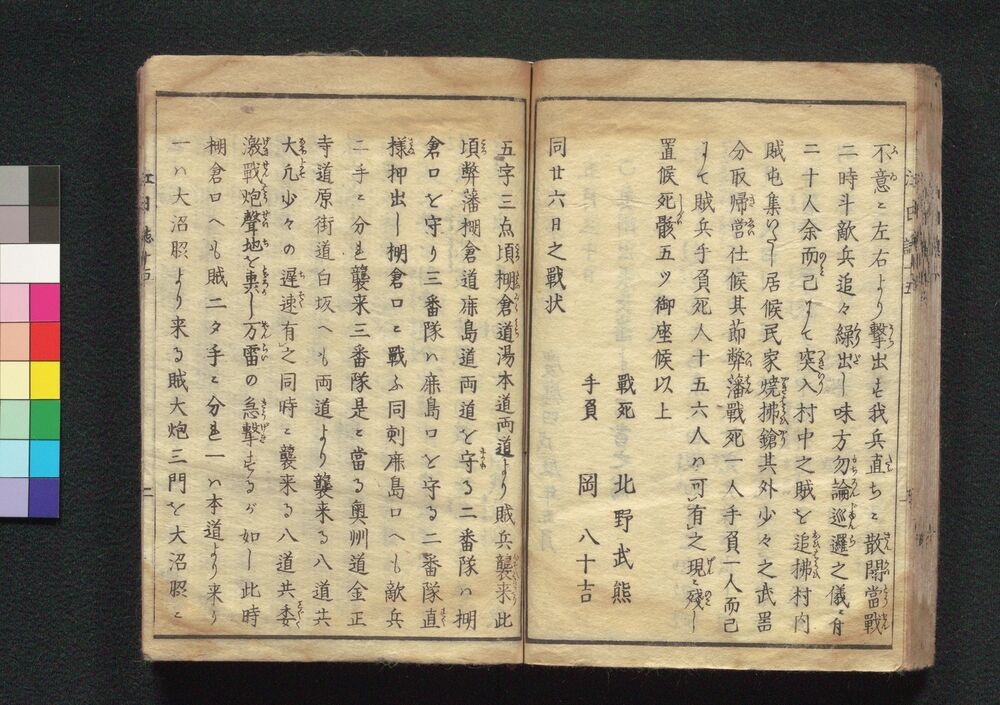 不意ニ左右より撃出も我兵直ちニ散開當戰
二時斗敵兵追々繰出し味方勿論巡邏之儀ニ付
二十人余而已にて突入村中之賊を追拂村内
賊屯集いたし居候民家焼拂鎗其外少々之武器
分取帰営仕候其節弊藩戰死一人手負一人而己
にて賊兵手負死人十五六人ハ可有之現ニ殘し
置候死骸五ツ御座候以上
戰死 北野武熊
手負 岡八十吉
同廿六日之戰状
五字三点頃棚倉道湯本道両道より賊兵襲来此
頃弊藩棚倉道麻島道両道を守る二番隊ハ棚
倉口を守り三番隊ハ麻島口を守る二番隊直
様押出し棚倉口ニ戰ふ同刻麻島口へも敵兵
二手ニ分れ襲来三番隊是ニ當る奥州道金正
寺道原街道白坂へも両道より襲来る八道共
大凡少々の遅速有之同時ニ襲来る八道共委
激戰炮聲地を裏し万雷の急撃するが如し此時
棚倉口へも賊二タ手ニ分れ一ハ本道より来り
一ハ大沼照より来る賊大炮三門を大沼照ニ